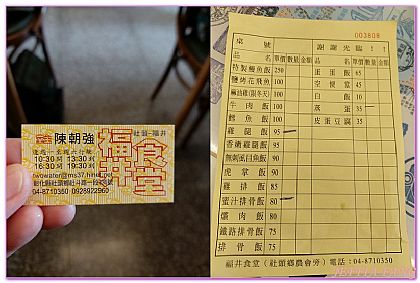 陳朝強
社頭-福井
福井食堂
週一至週六 打飯
10:30 開 13:30 到
16:30 開 19:30 到
twowater@ms37.hinet.net
04-8710350 0928922960
003808
桌號
謝謝光臨!!
品名 單價 數量 金額 品名 單價 數量 金額
特製鰻魚飯 250 蛋蛋飯 65
鹽烤花飛魚 100 空便當 45
麻油雞(限冬天) 100 白飯 10
牛肉飯 100 蒸蛋 35
鱈魚飯 100 皮蛋豆腐 35
雞腿飯 95
香嫩雞腿飯 95
無刺虱目魚飯 90
虎掌飯 90
雞排飯 85
蜜汁排骨飯 80
爌肉飯 80
鐵路排骨飯 75
排骨飯 75
福井食堂(社頭鄉農會旁)電話:04-8710350